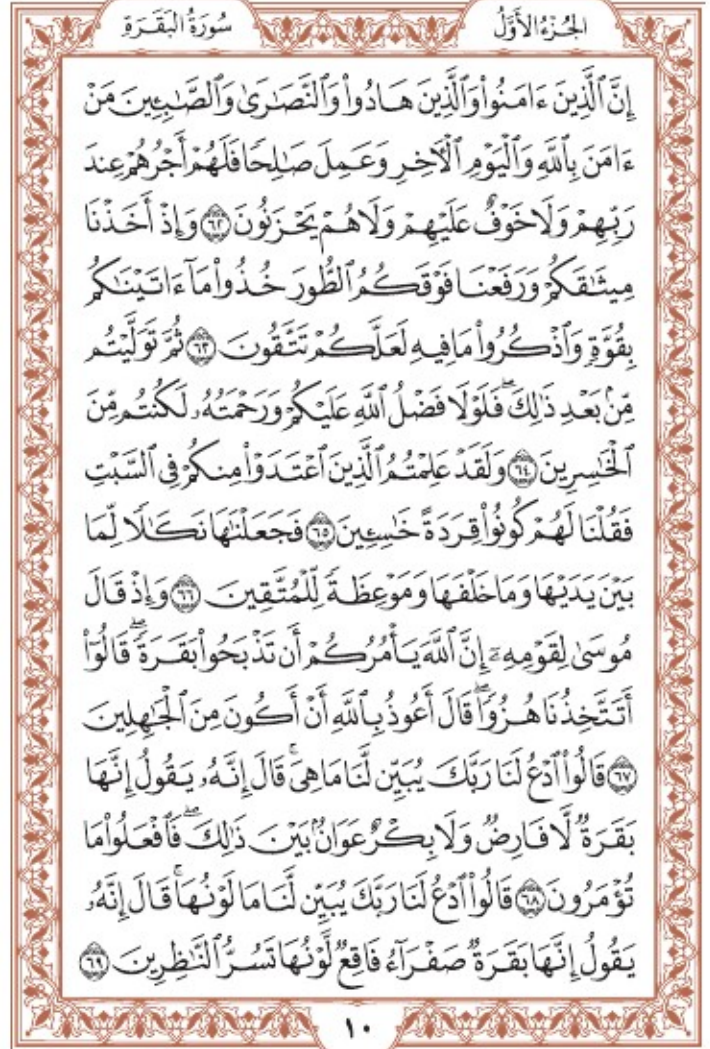 الجُزْءُ الأَوَّلُ سُورَةُ البَقَرَةِ
إِنَّ ٱلَّذِينَ ءَامَنُوا۟ وَٱلَّذِينَ هَادُوا۟ وَٱلنَّصَٰرَىٰ وَٱلصَّٰبِـِٔينَ مَنْ
ءَامَنَ بِٱللَّهِ وَٱلْيَوْمِ ٱلْءَاخِرِ وَعَمِلَ صَٰلِحًا فَلَهُمْ أَجْرُهُمْ عِندَ
رَبِّهِمْ وَلَا خَوْفٌ عَلَيْهِمْ وَلَا هُمْ يَحْزَنُونَ ٦٢ وَإِذْ أَخَذْنَا
مِيثَٰقَكُمْ وَرَفَعْنَا فَوْقَكُمُ ٱلطُّورَ خُذُوا۟ مَآ ءَاتَيْنَٰكُم
بِقُوَّةٍ وَٱذْكُرُوا۟ مَا فِيهِ لَعَلَّكُمْ تَتَّقُونَ ٦٣ ثُمَّ تَوَلَّيْتُم
مِّنۢ بَعْدِ ذَٰلِكَ ۖ فَلَوْلَا فَضْلُ ٱللَّهِ عَلَيْكُمْ وَرَحْمَتُهُۥ لَكُنتُم مِّنَ
ٱلْخَٰسِرِينَ ٦٤ وَلَقَدْ عَلِمْتُمُ ٱلَّذِينَ ٱعْتَدَوْا۟ مِنكُمْ فِى ٱلسَّبْتِ
فَقُلْنَا لَهُمْ كُونُوا۟ قِرَدَةً خَٰسِـِٔينَ ٦٥ فَجَعَلْنَٰهَا نَكَٰلًا لِّمَا
بَيْنَ يَدَيْهَا وَمَا خَلْفَهَا وَمَوْعِظَةً لِّلْمُتَّقِينَ ٦٦ وَإِذْ قَالَ
مُوسَىٰ لِقَوْمِهِۦٓ إِنَّ ٱللَّهَ يَأْمُرُكُمْ أَن تَذْبَحُوا۟ بَقَرَةً ۖ قَالُوٓا۟
أَتَتَّخِذُنَا هُزُوًا ۖ قَالَ أَعُوذُ بِٱللَّهِ أَنْ أَكُونَ مِنَ ٱلْجَٰهِلِينَ
٦٧ قَالُوا۟ ٱدْعُ لَنَا رَبَّكَ يُبَيِّن لَّنَا مَا هِىَ ۚ قَالَ إِنَّهُۥ يَقُولُ إِنَّهَا
بَقَرَةٌ لَّا فَارِضٌ وَلَا بِكْرٌ عَوَانٌۢ بَيْنَ ذَٰلِكَ ۖ فَٱفْعَلُوا۟ مَا
تُؤْمَرُونَ ٦٨ قَالُوا۟ ٱدْعُ لَنَا رَبَّكَ يُبَيِّن لَّنَا مَا لَوْنُهَا ۚ قَالَ إِنَّهُۥ
يَقُولُ إِنَّهَا بَقَرَةٌ صَفْرَآءُ فَاقِعٌ لَّوْنُهَا تَسُرُّ ٱلنَّٰظِرِينَ ٦٩
١٠